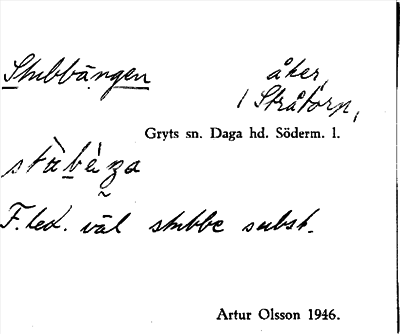 Stubbängen åker,
/ Stråtorp,
Gryts sn. Daga hd. Söderm. l.
F. led. väl stubbe subst.
Artur Olsson 1946.